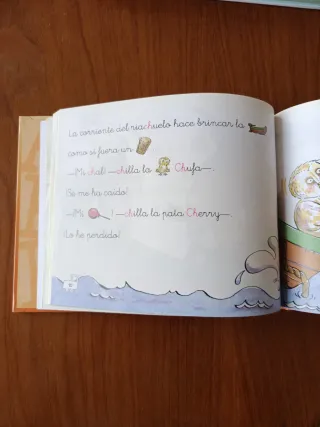 La corriente del riachuelo hace brincar la
como si fuera un
—¡Mi chal! —chilla la Chufa—.
¡Se me ha caído!
—¡Mi ! —chilla la pata Cherry—.
¡Lo he perdido!